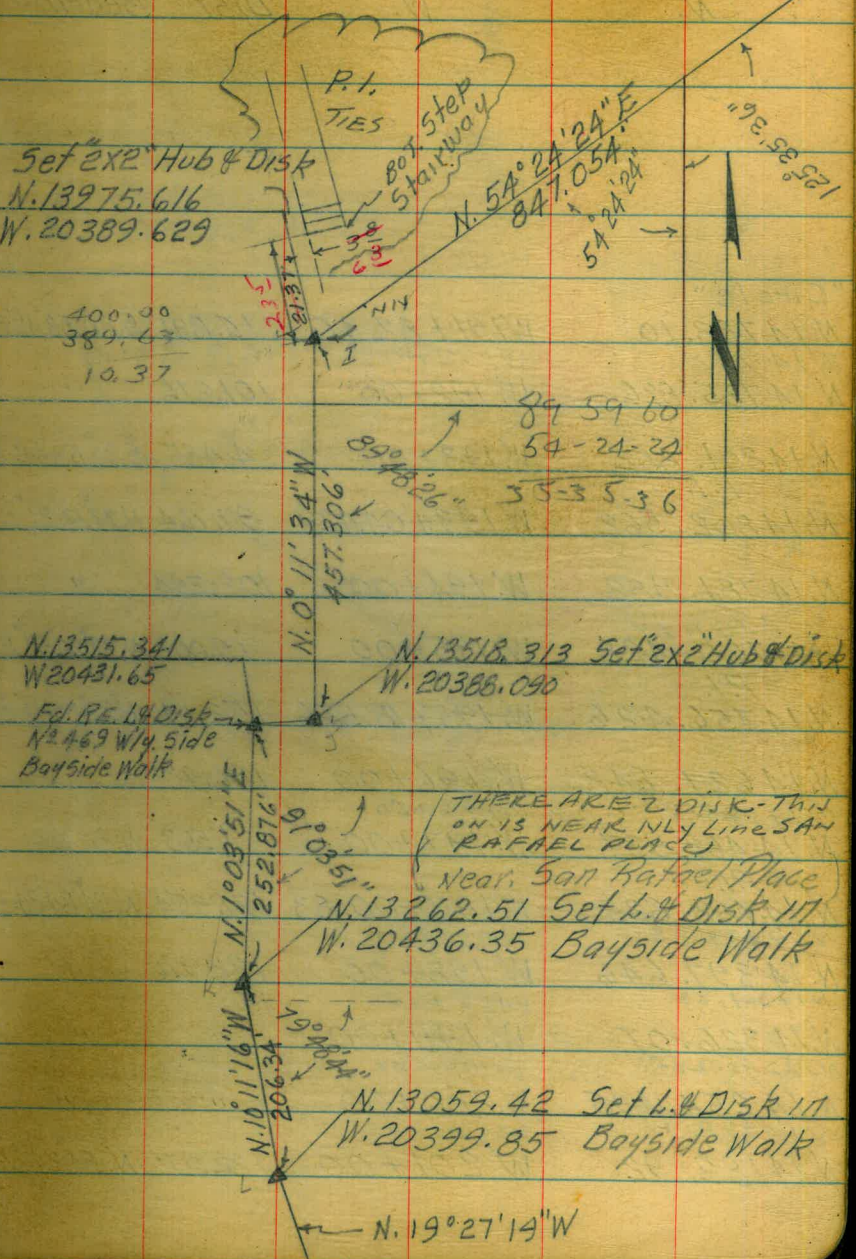 P.I.
TIES
BOT. Step
Stairway
Set "2X2" Hub & Disk
N. 13975.616
W. 20389.629
N. 54° 24' 24" E
847.054'
54° 24' 24"
125° 35' 36"
235
21.37
63
400.00
389.63
10.37
N
89 59 60
54-24-24
35-35-36
89° 48' 26"
N. 0° 11' 34" W
457.306'
N. 13515.341
W 20431.65
Fd. RE. L & Disk
No 469 W'ly. Side
Bayside Walk
N. 13518.313 Set "2X2" Hub & Disk
W. 20388.090
THERE ARE 2 DISK - This
ON IS NEAR NLY Line SAN
RAFAEL PLACE
Near. San Rafael Place
N. 1° 03' 51" E
252.876'
91° 03' 51"
N. 13262.51 Set L. & Disk in
W. 20436.35 Bayside Walk
N. 10° 11' 16" W
206.34'
N. 13059.42 Set L. & Disk in
W. 20399.85 Bayside Walk
N. 19° 27' 19" W